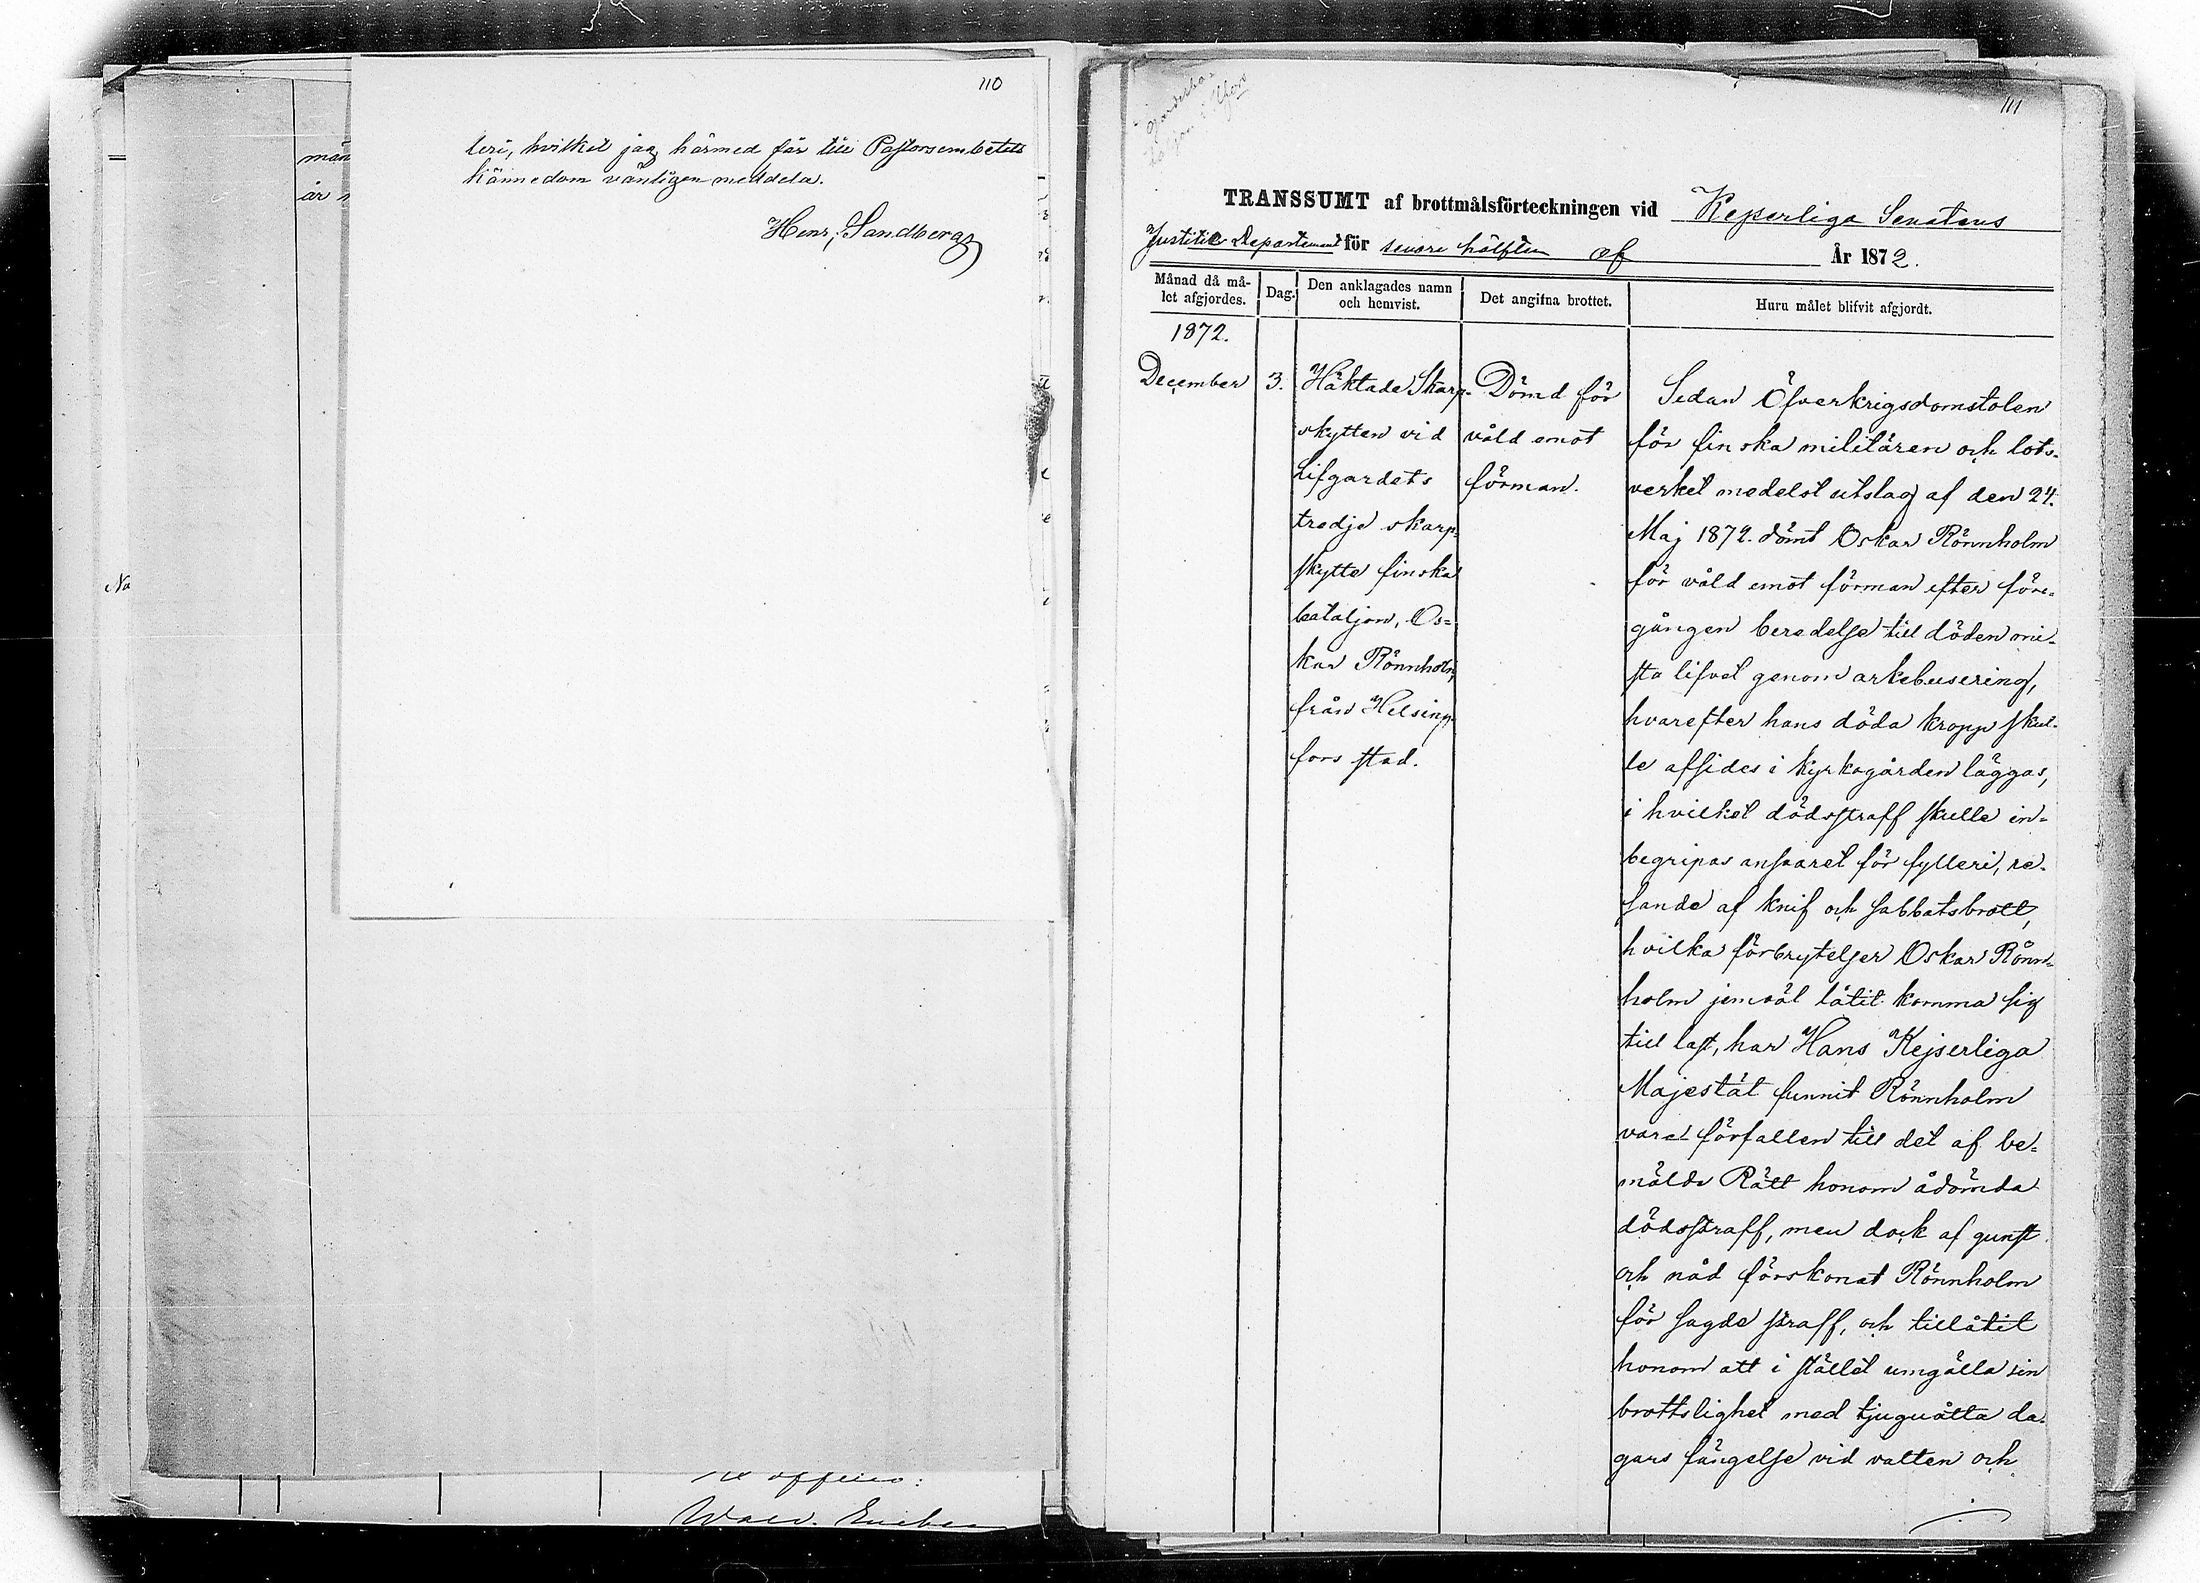 110
män
år
No
leri, hvilket jag härmed får till Pastorsembetets
kännedom vänligen meddela.
Henr. Sandberg
ex officio:
111
TRANSSUMT af brottmålsförteckningen vid Kejserliga Senatens
Justitie Departement för senare hälften af År 1872.
Månad då må-
let afgjordes.
Dag.
Den anklagades namn
och hemvist.
Det angifna brottet.
Huru målet blifvit afgjordt.
1872.
December
3.
Häktade Skarp-
skytten vid
Lifgardets
tredje skarp-
skytte finska
bataljon, Os-
kar Rönnholm,
från Helsing-
fors stad.
Dömd för
våld emot
förman.
Sedan Öfverkrigsdomstolen
för finska militären och lots-
verket medelst utslag af den 24.
Maj 1872. dömt Oskar Rönnholm
för våld emot förman efter före-
gången beredelse till döden mi-
sta lifvet genom arkebusering,
hvarefter hans döda kropp skul-
le afsides i kyrkogården läggas,
i hvilket dödsstraff skulle in-
begripas ansvaret för fylleri, re-
sande af knif och sabbatsbrott,
hvilka förbrytelser Oskar Rönn-
holm jemväl låtit komma sig
till last, har Hans Kejserliga
Majestät funnit Rönnholm
vara förfallen till det af be-
mälde Rätt honom ådömda
dödsstraff, men dock af gunst
och nåd förskonat Rönnholm
för sagde straff, och tillåtit
honom att i stället umgälla sin
brottslighet med tjuguåtta da-
gars fängelse vid vatten och